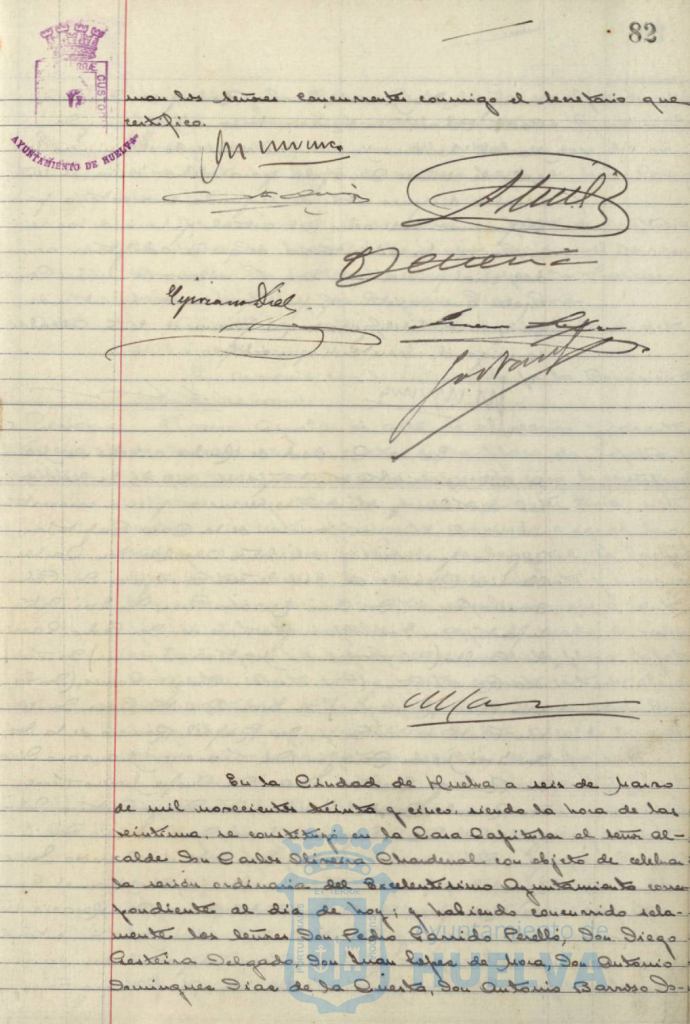 82
CUSTO
AYUNTAMIENTO DE HUELVA
man los señores concurrentes conmigo el Secretario que
certifico.
Cipriano Diaz
En la Ciudad de Huelva a seis de Marzo
de mil novecientos treinta y cinco, siendo la hora de las
veintiuna, se constituyó en la Casa Capitular el señor Al-
calde Don Carlos Oliveira Chardenal con objeto de celebrar
la sesión ordinaria del Excelentísimo Ayuntamiento corres-
pondiente al dia de hoy; y habiendo concurrido sola-
mente los señores Don Pedro Garrido Perelló, Don Diego
Delgado, Don Juan López de Mora, Don Antonio
Dominguez Diaz de la Cuesta, Don Antonio Barroso
Ayuntamiento de
HUELVA